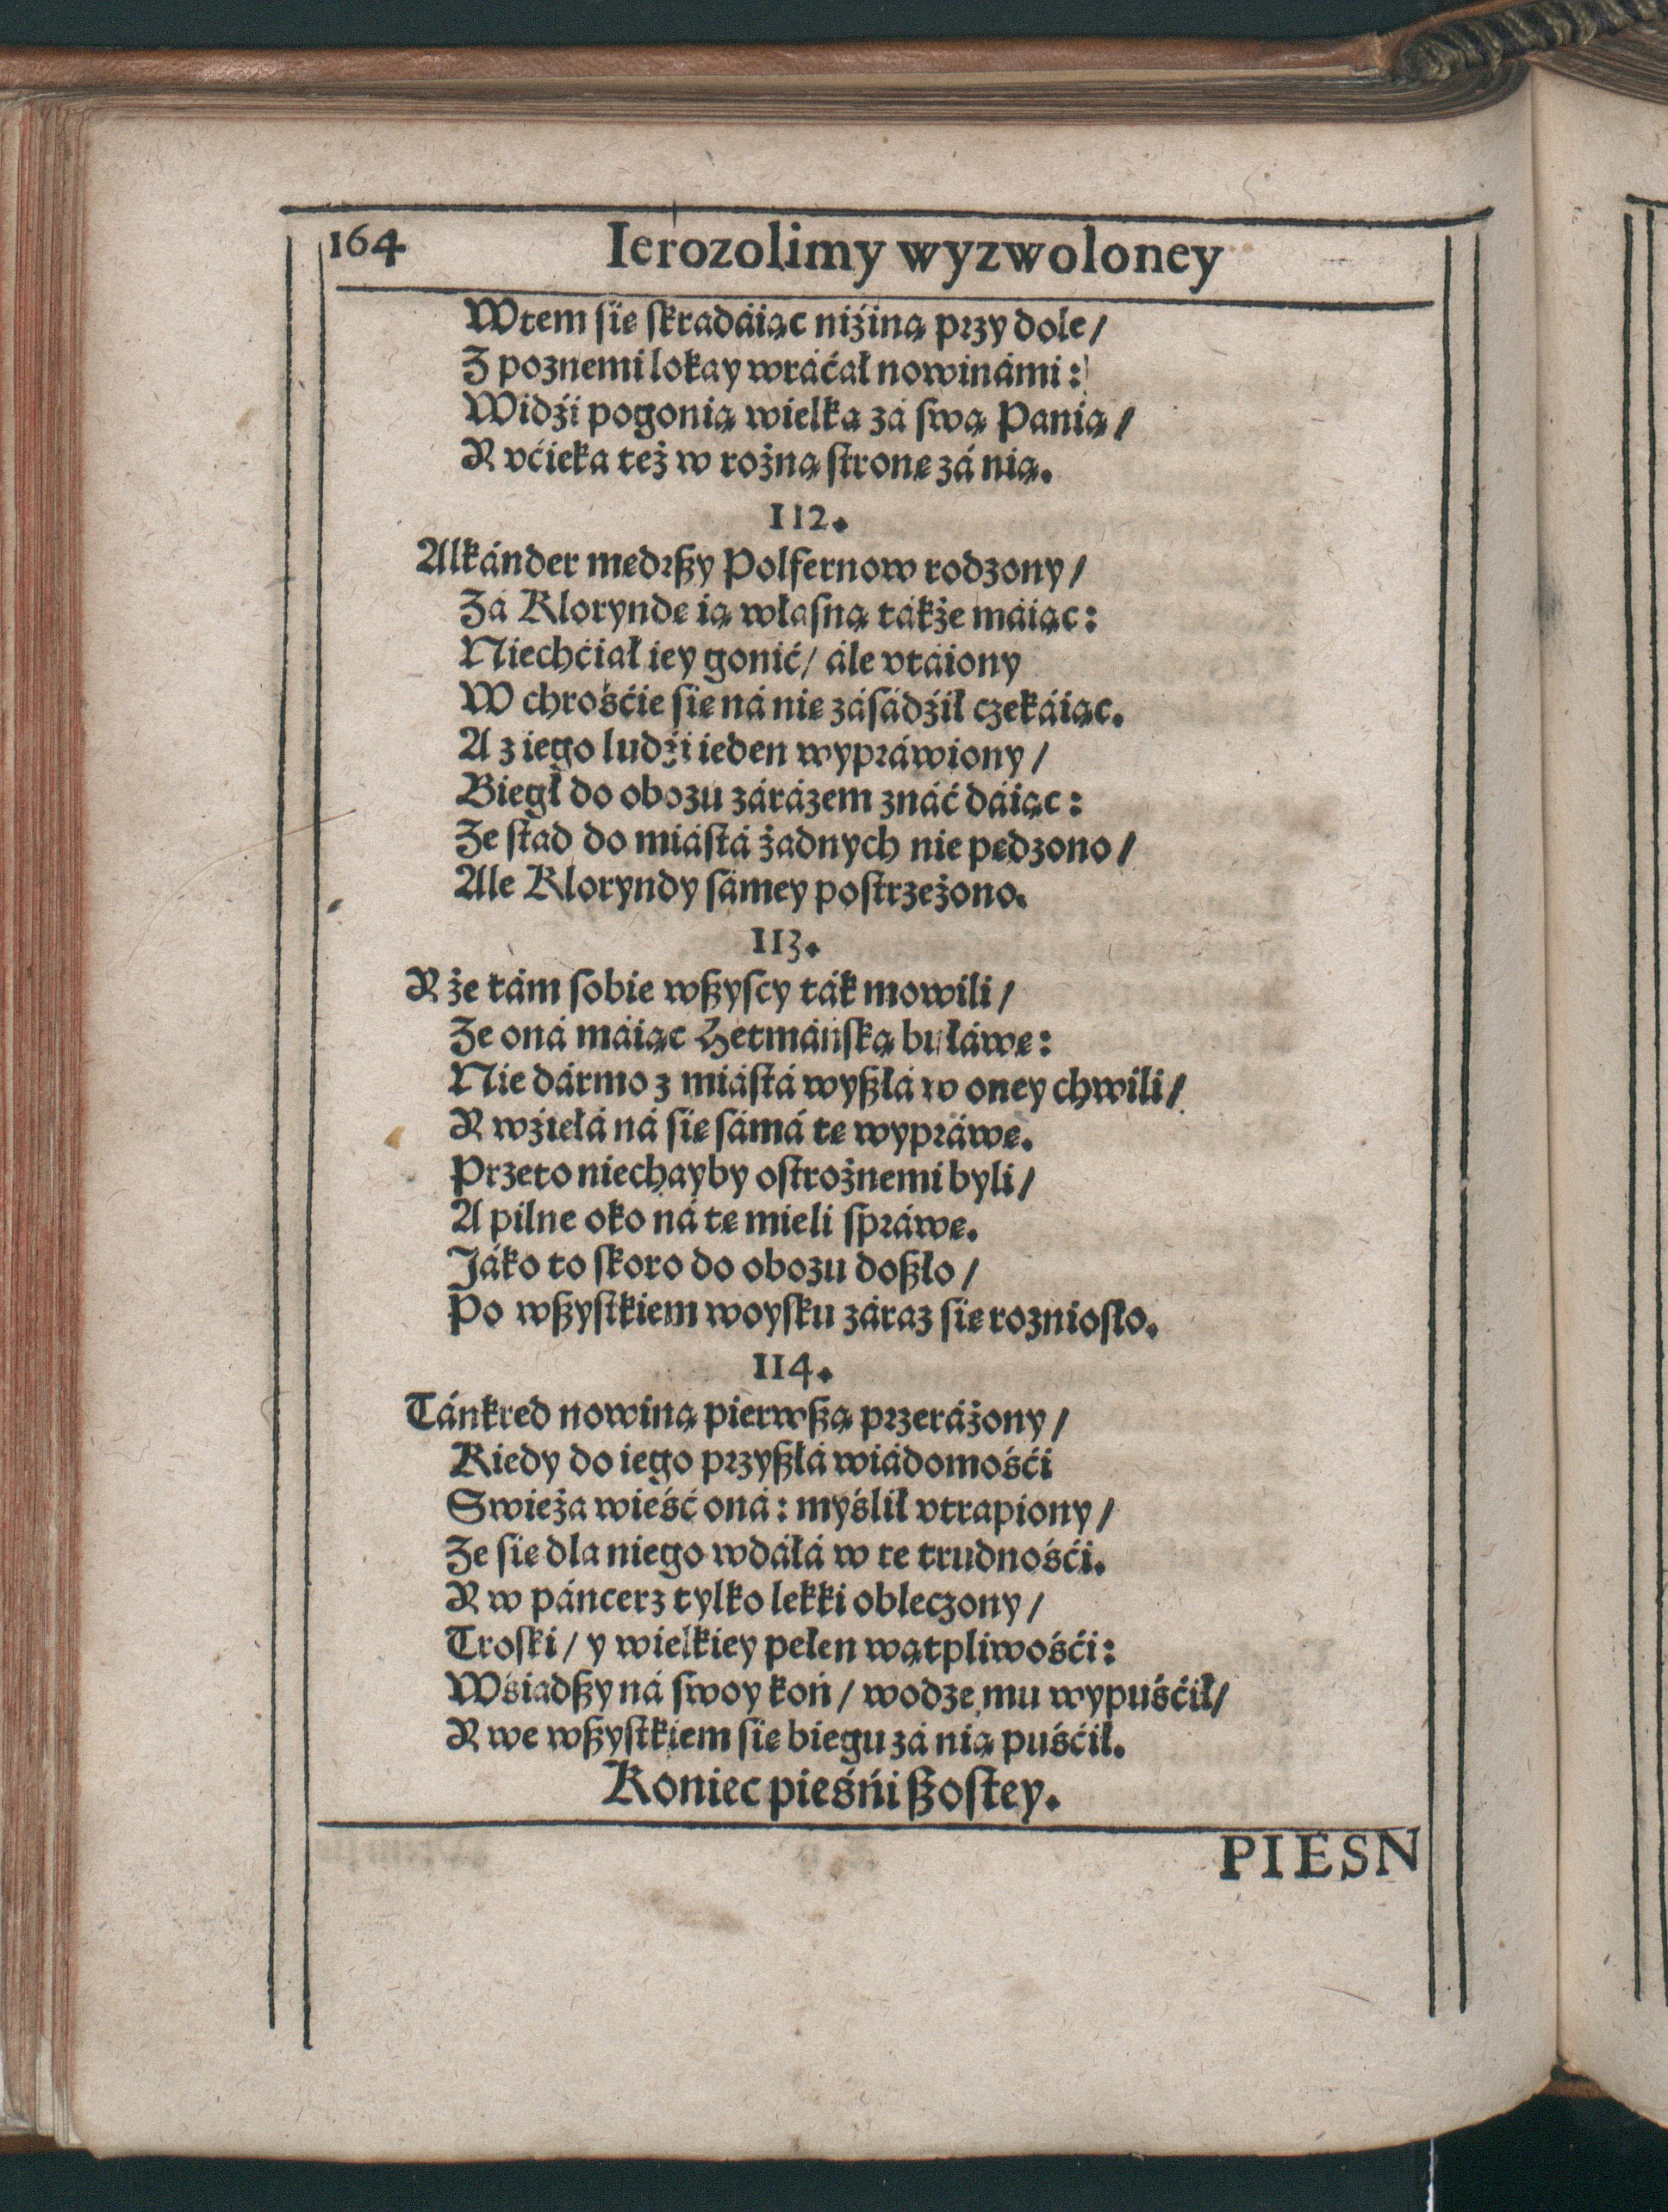 164 Ierozolimy wyzwoloney
Wtem ſie ſkradáiąc niźiną przy dole/
Z poznemi lokay wráćał nowinámi:
Widźi pogonią wielką zá ſwą Panią/
Y vćieka też w rożną ſtronę zá nią.
112.
Alkánder mędrßy Polfernow rodzony/
Zá Kloryndę ią właſną tákże máiąc:
Niechćiał iey gonić/ ále vtáiony
W chrośćie ſię ná nię záſádźił czekáiąc.
A z iego ludźi ieden wypráwiony/
Biegł do obozu zárázem znáć dáiąc:
Że ſtad do miáſtá żadnych nie pędzono/
Ale Kloryndy ſámey poſtrzeżono.
113.
Y że tám ſobie wßyſcy ták mowili/
Że oná máiąc Hetmáńſką bułáwę:
Nie dármo z miáſtá wyßłá w oney chwili/
Y wźięłá ná ſię ſámá tę wypráwę.
Przeto niechayby oſtrożnemi byli/
A pilne oko ná tę mieli ſpráwę.
Jáko to ſkoro do obozu doßło/
Po wßyſtkiem woyſku záraz ſię roznioſło.
114.
Tánkred nowiną pierwßą przeráżony/
Kiedy do iego przyßłá wiádomośći
Swieża wieść oná: myślił vtrapiony/
Że ſię dla niego wdáłá w te trudnośći.
Y w páncerz tylko lekki obleczony/
Troſki/ y wielkiey pełen wątpliwośći:
Wśiadßy ná ſwoy koń/ wodze mu wypuśćił/
Y we wßyſtkiem ſię biegu zá nią puśćił.
Koniec pieśńi ßoſtey.
PIESN